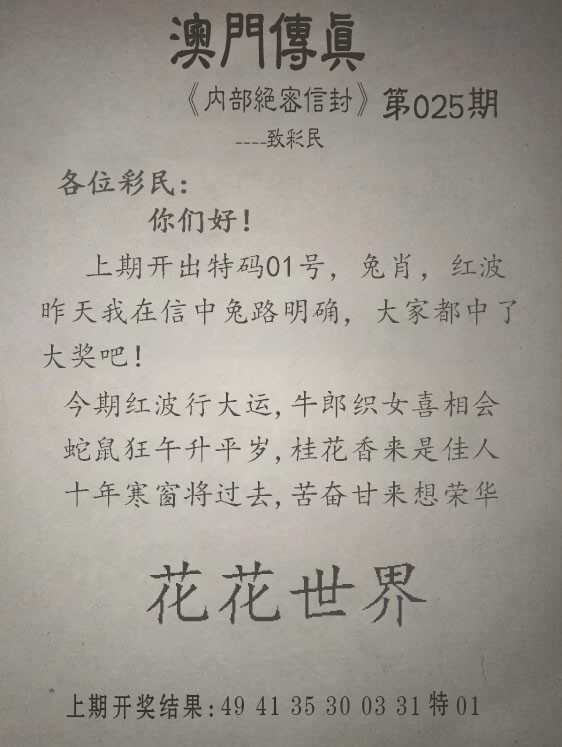 澳門傳眞
《内部絕密信封》第025期
----致彩民
各位彩民：
你们好！
上期开出特码01号，兔肖，红波
昨天我在信中兔路明确，大家都中了
大奖吧！
今期红波行大运,牛郎织女喜相会
蛇鼠狂午升平岁,桂花香来是佳人
十年寒窗将过去,苦奋甘来想荣华
花花世界
上期开奖结果:49 41 35 30 03 31 特 01